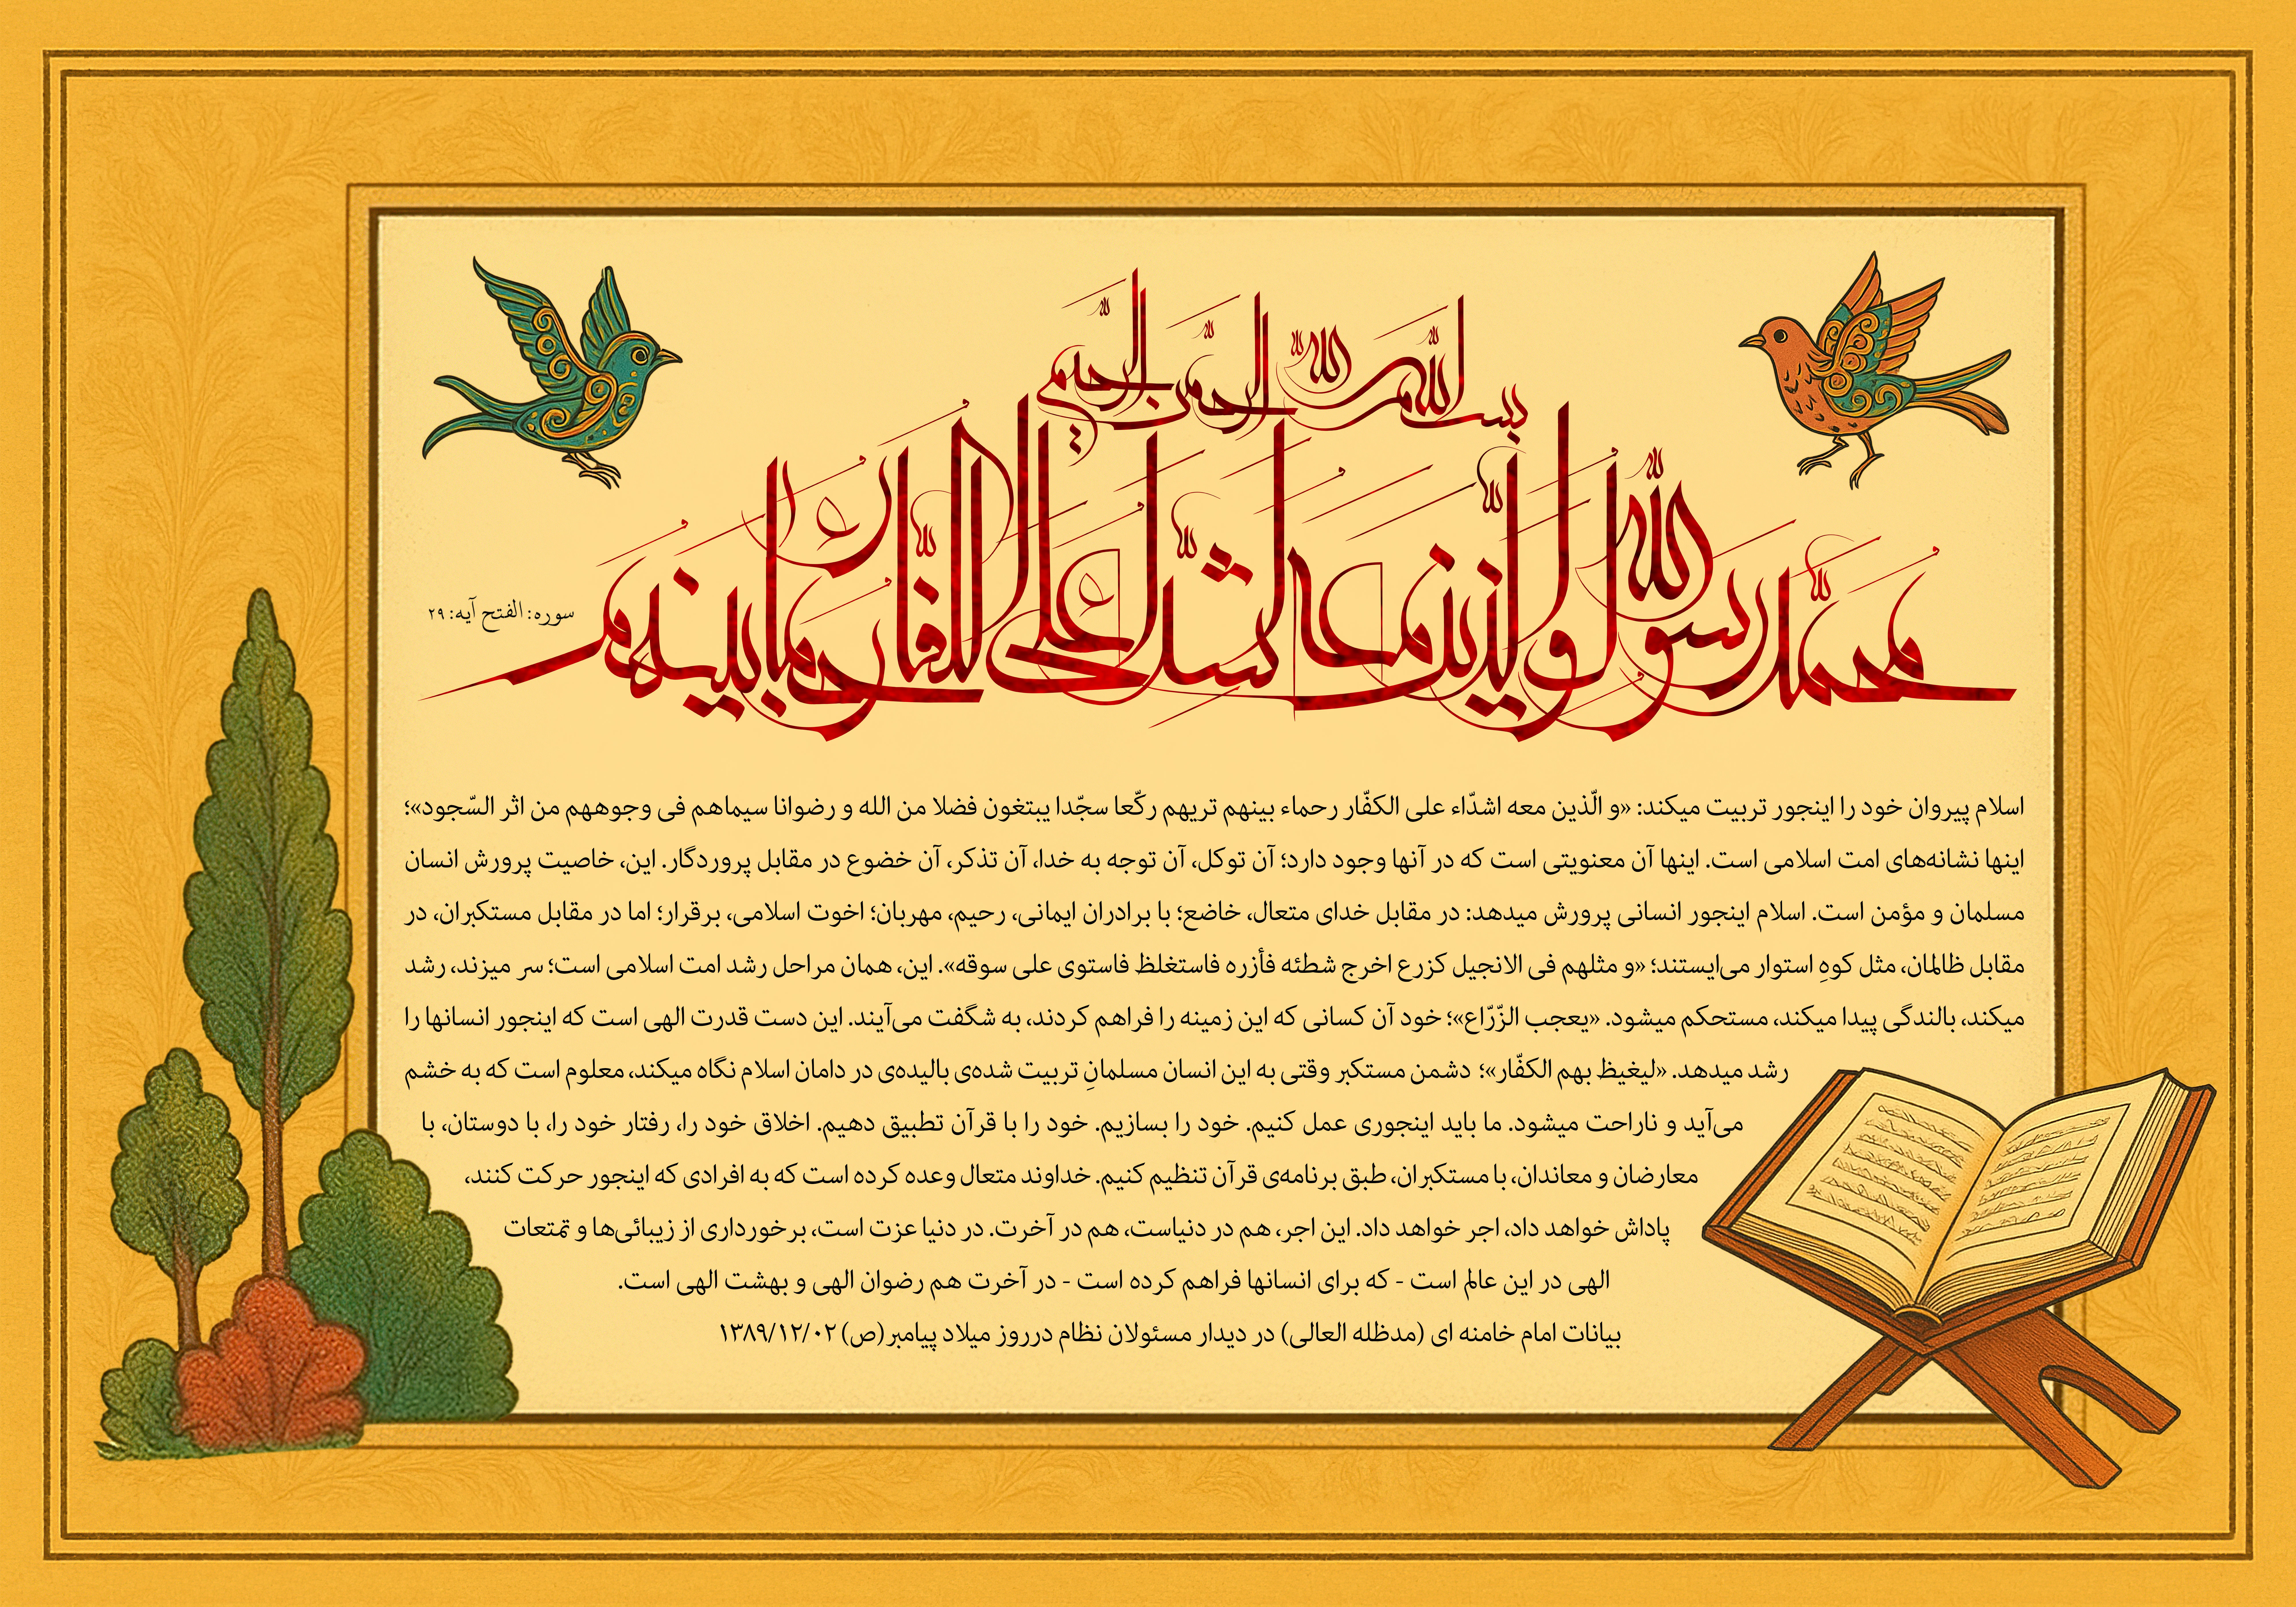 بسم الله الرحمن الرحیم
محمد رسول الله والذین معه اشداء علی الکفار رحماء بینهم
سوره: الفتح آیه: ۲۹
اسلام پیروان خود را اینجور تربیت میکند: «و الّذین معه اشدّاء علی الکفّار رحماء بینهم تریهم رکّعا سجّدا یبتغون فضلا من الله و رضوانا سیماهم فی وجوههم من اثر السّجود»؛
اینها نشانه‌های امت اسلامی است. اینها آن معنویتی است که در آنها وجود دارد؛ آن توکل، آن توجه به خدا، آن تذکر، آن خضوع در مقابل پروردگار. این، خاصیت پرورش انسان
مسلمان و مؤمن است. اسلام اینجور انسانی پرورش میدهد: در مقابل خدای متعال، خاضع؛ با برادران ایمانی، رحیم، مهربان؛ اخوت اسلامی، برقرار؛ اما در مقابل مستکبران، در
مقابل ظالمان، مثل کوهِ استوار می‌ایستند؛ «و مثلهم فی الانجیل کزرع اخرج شطئه فأزره فاستغلظ فاستوی علی سوقه». این، همان مراحل رشد امت اسلامی است؛ سر میزند، رشد
میکند، بالندگی پیدا میکند، مستحکم میشود. «یعجب الزّرّاع»؛ خود آن کسانی که این زمینه را فراهم کردند، به شگفت می‌آیند. این دست قدرت الهی است که اینجور انسانها را
رشد میدهد. «لیغیظ بهم الکفّار»؛ دشمن مستکبر وقتی به این انسان مسلمانِ تربیت شده‌ی بالیده‌ی در دامان اسلام نگاه میکند، معلوم است که به خشم
می‌آید و ناراحت میشود. ما باید اینجوری عمل کنیم. خود را بسازیم. خود را با قرآن تطبیق دهیم. اخلاق خود را، رفتار خود را، با دوستان، با
معارضان و معاندان، با مستکبران، طبق برنامه‌ی قرآن تنظیم کنیم. خداوند متعال وعده کرده است که به افرادی که اینجور حرکت کنند،
پاداش خواهد داد، اجر خواهد داد. این اجر، هم در دنیاست، هم در آخرت. در دنیا عزت است، برخورداری از زیبائی‌ها و تمتعات
الهی در این عالم است - که برای انسانها فراهم کرده است - در آخرت هم رضوان الهی و بهشت الهی است.
بیانات امام خامنه ای (مدظله العالی) در دیدار مسئولان نظام درروز میلاد پیامبر(ص) ۱۳۸۹/۱۲/۰۲